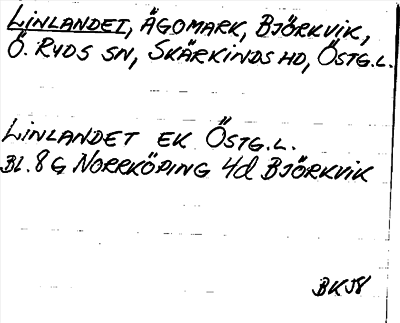 LINLANDET, ÄGOMARK, BJÖRKVIK,
Ö. RYDS SN, SKÄRKINDS HD, ÖSTG.L.
LINLANDET EK ÖSTG.L.
BL. 8G NORRKÖPING 4d BJÖRKVIK
BKJ8